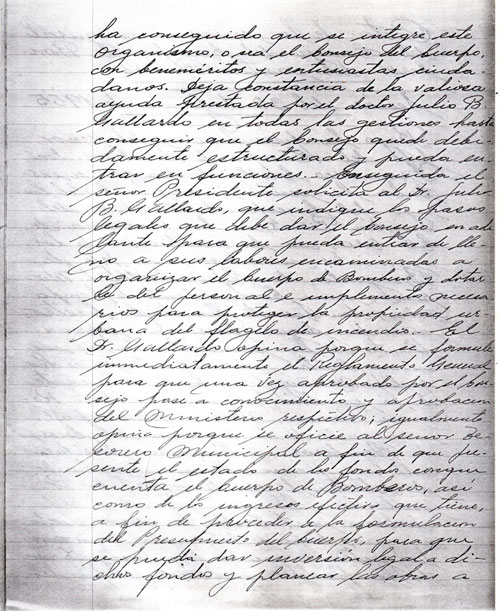 ha conseguido que se integre este
organismo, o sea el Consejo del Cuerpo,
con beneméritos y entusiastas ciuda-
danos. Deja constancia de la valiosa
ayuda prestada por el doctor Julio B.
Gallardo en todas las gestiones hasta
conseguir que el Consejo quede debi-
damente estructurado y pueda en-
trar en funciones.- Enseguida el
señor Presidente solicita al Dr. Julio
B. Gallardo, que indique los pasos
legales que debe dar el Consejo en ade
lante para que pueda entrar de lle-
no a sus labores encaminadas a
organizar el Cuerpo de Bomberos y dotar
le del personal e implementos necesa
rios para proteger la propiedad ur-
bana del flagelo de incendio. El
Dr. Gallardo opina porque se formule
inmediatamente el Reglamento General
para que una vez aprobado por el Con
sejo pase a conocimiento y aprobación
del Ministerio respectivo; igualmente
opina porque se oficie al señor Te-
sorero Municipal a fin de que pre
sente el estado de los fondos conque
cuenta el Cuerpo de Bomberos, así
como de los ingresos efectivos que tiene,
a fin de proceder a la formulación
del Presupuesto del Cuerpo, para que
se pueda dar inversión legal a di-
chos fondos y planear las obras a